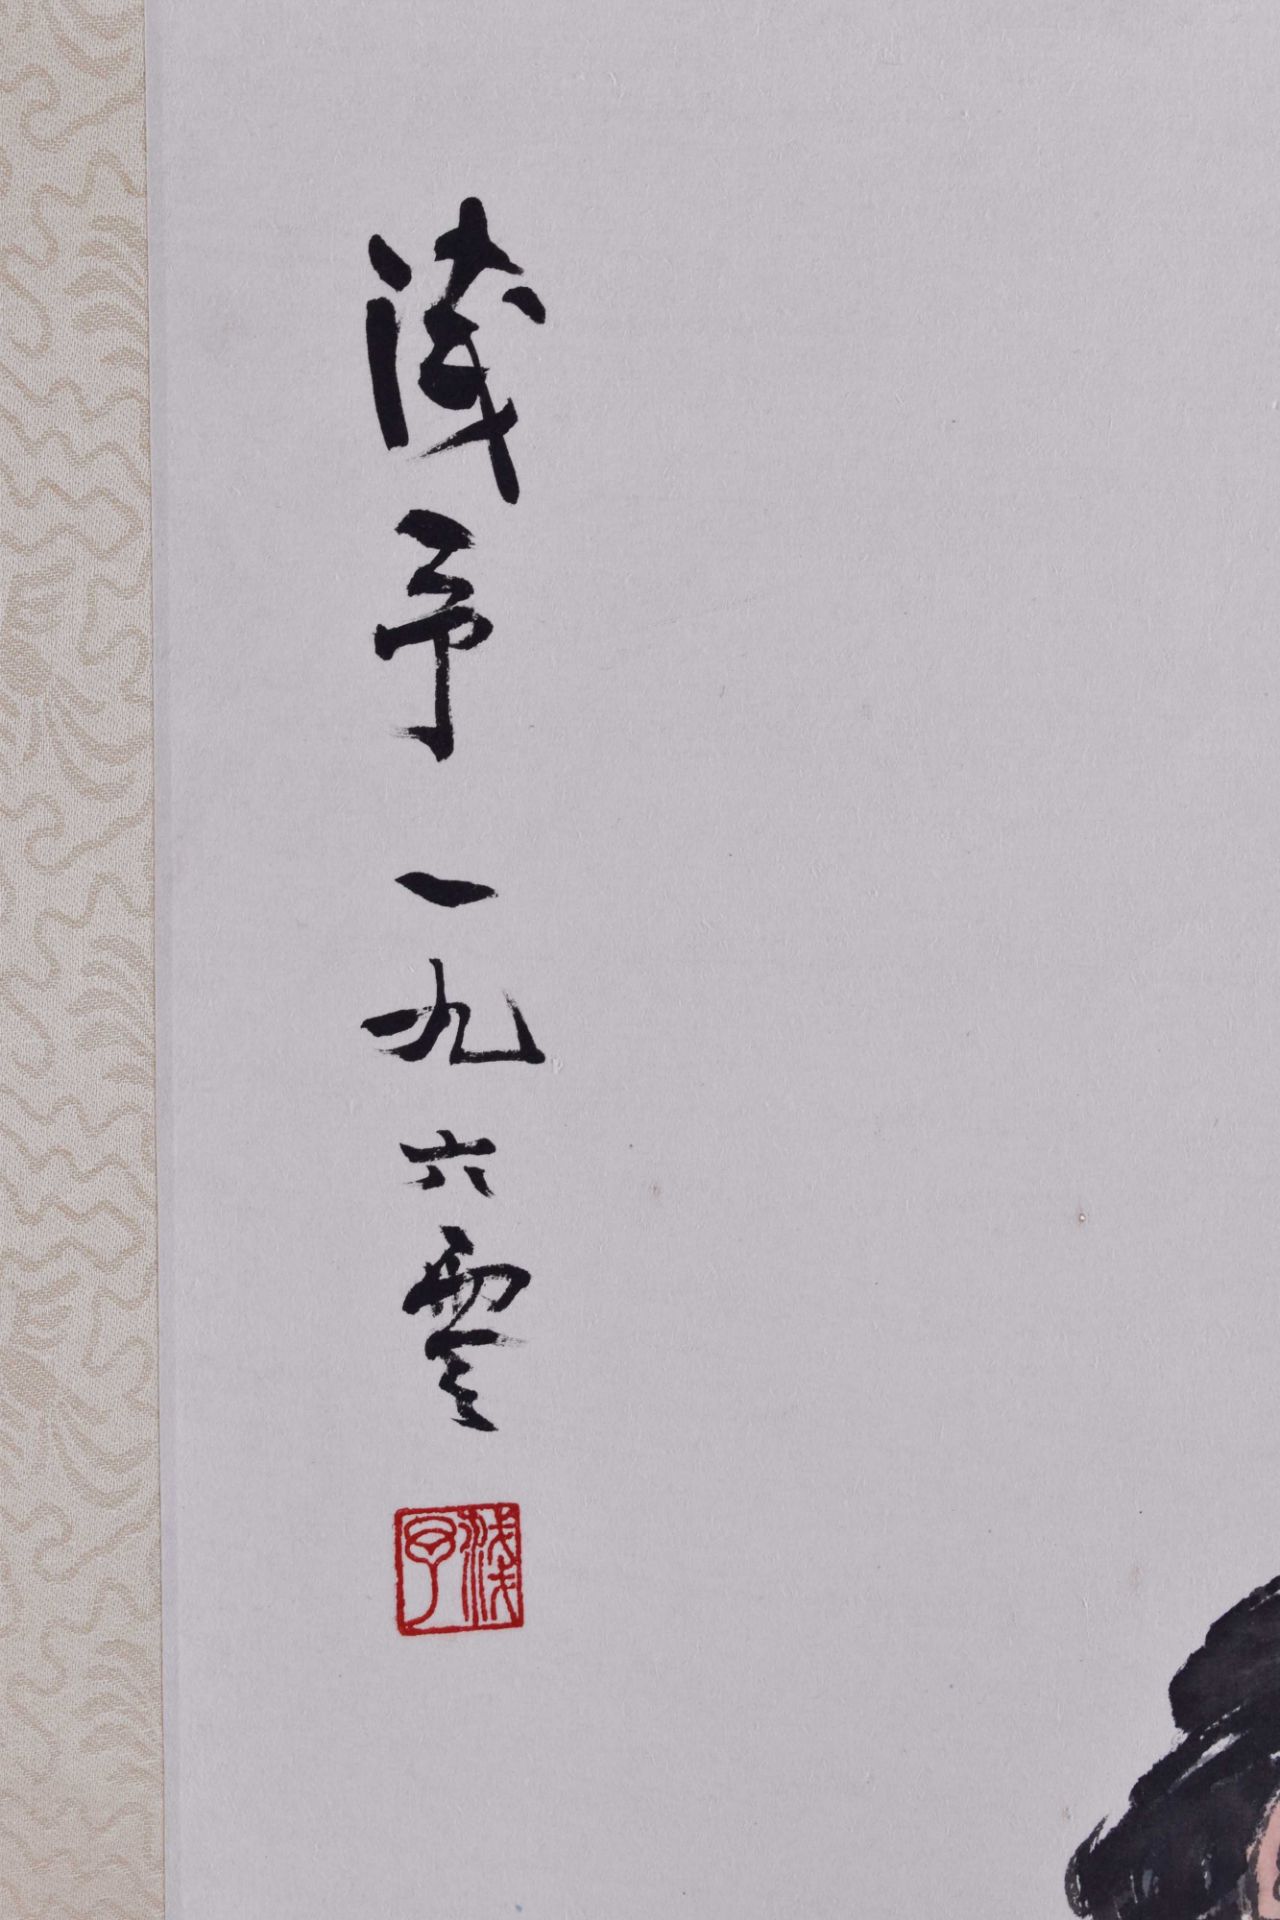 淺予一九六零
淺予